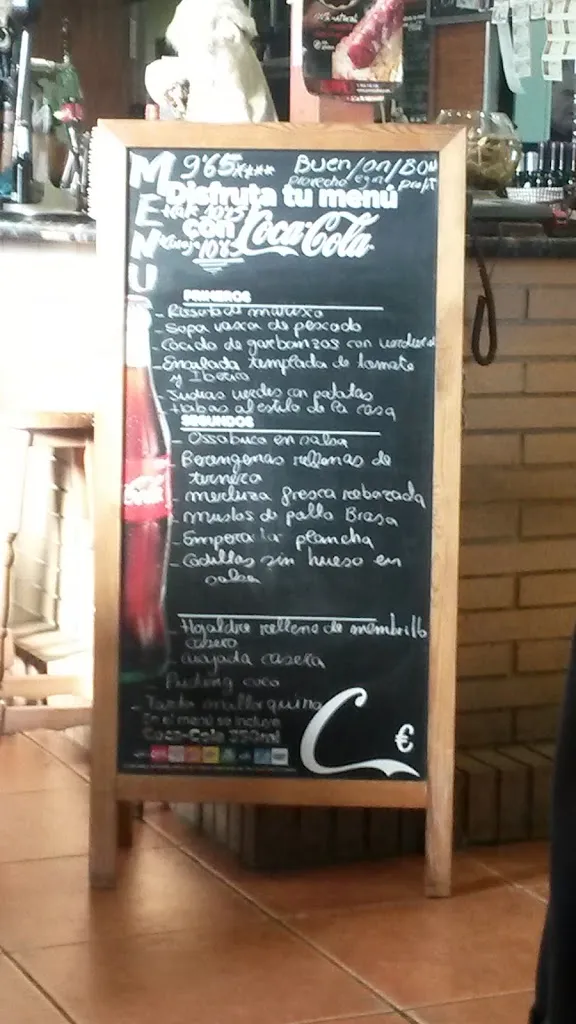 MENU
9'65
Buen/on/Bon
provecho egin profit
Disfruta tu menú
con Coca-Cola
10'65
PRIMEROS
- Risotto de marisco
- Sopa vasca de pescado
- Cocido de garbanzos con verduras
- Ensalada templada de tomate
y Iberico
- Judias verdes con patatas
- Habas al estilo de la casa
SEGUNDOS
- Ossobuco en salsa
- Berengenas rellenas de
ternera
- merluza fresca rebozada
- muslos de pollo Brasa
- Empera la plancha
- Codillas sin hueso en
salsa
- Hojaldre relleno de membrillo
casero
- cuajada casera
Puding coco
- Tarta mallorquina
En el menú se incluye
Coca-Cola 350ml
€